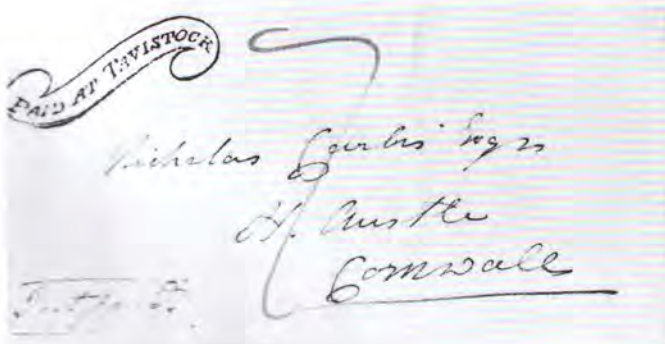 PAID AT TAVISTOCK
7
Nicholas Esqre
St. Austle
Cornwall